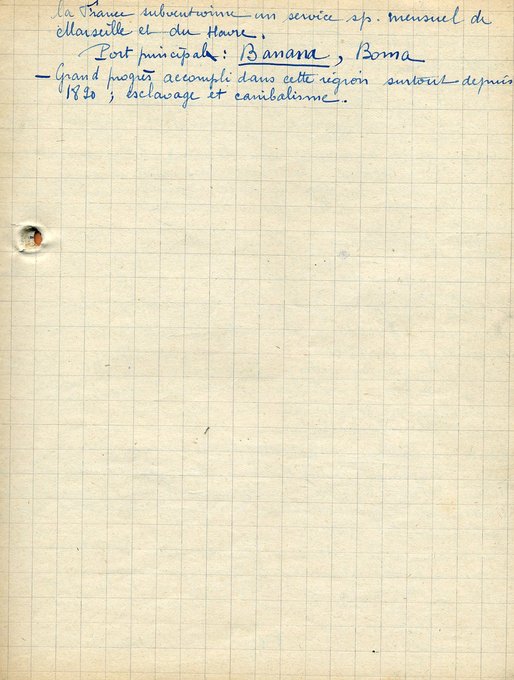 la France subventionne un service sp. mensuel de
Marseille et du Havre.
Port principal : Banana, Boma
— Grand progrès accompli dans cette région surtout depuis
1890 ; esclavage et canibalisme.